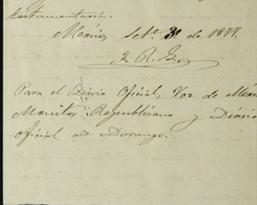 Mexico, Set.e 3 de 1877.
Para el Diario Oficial, Voz de Méxi
Monitor Republicano y Diario
Oficial de Durango.